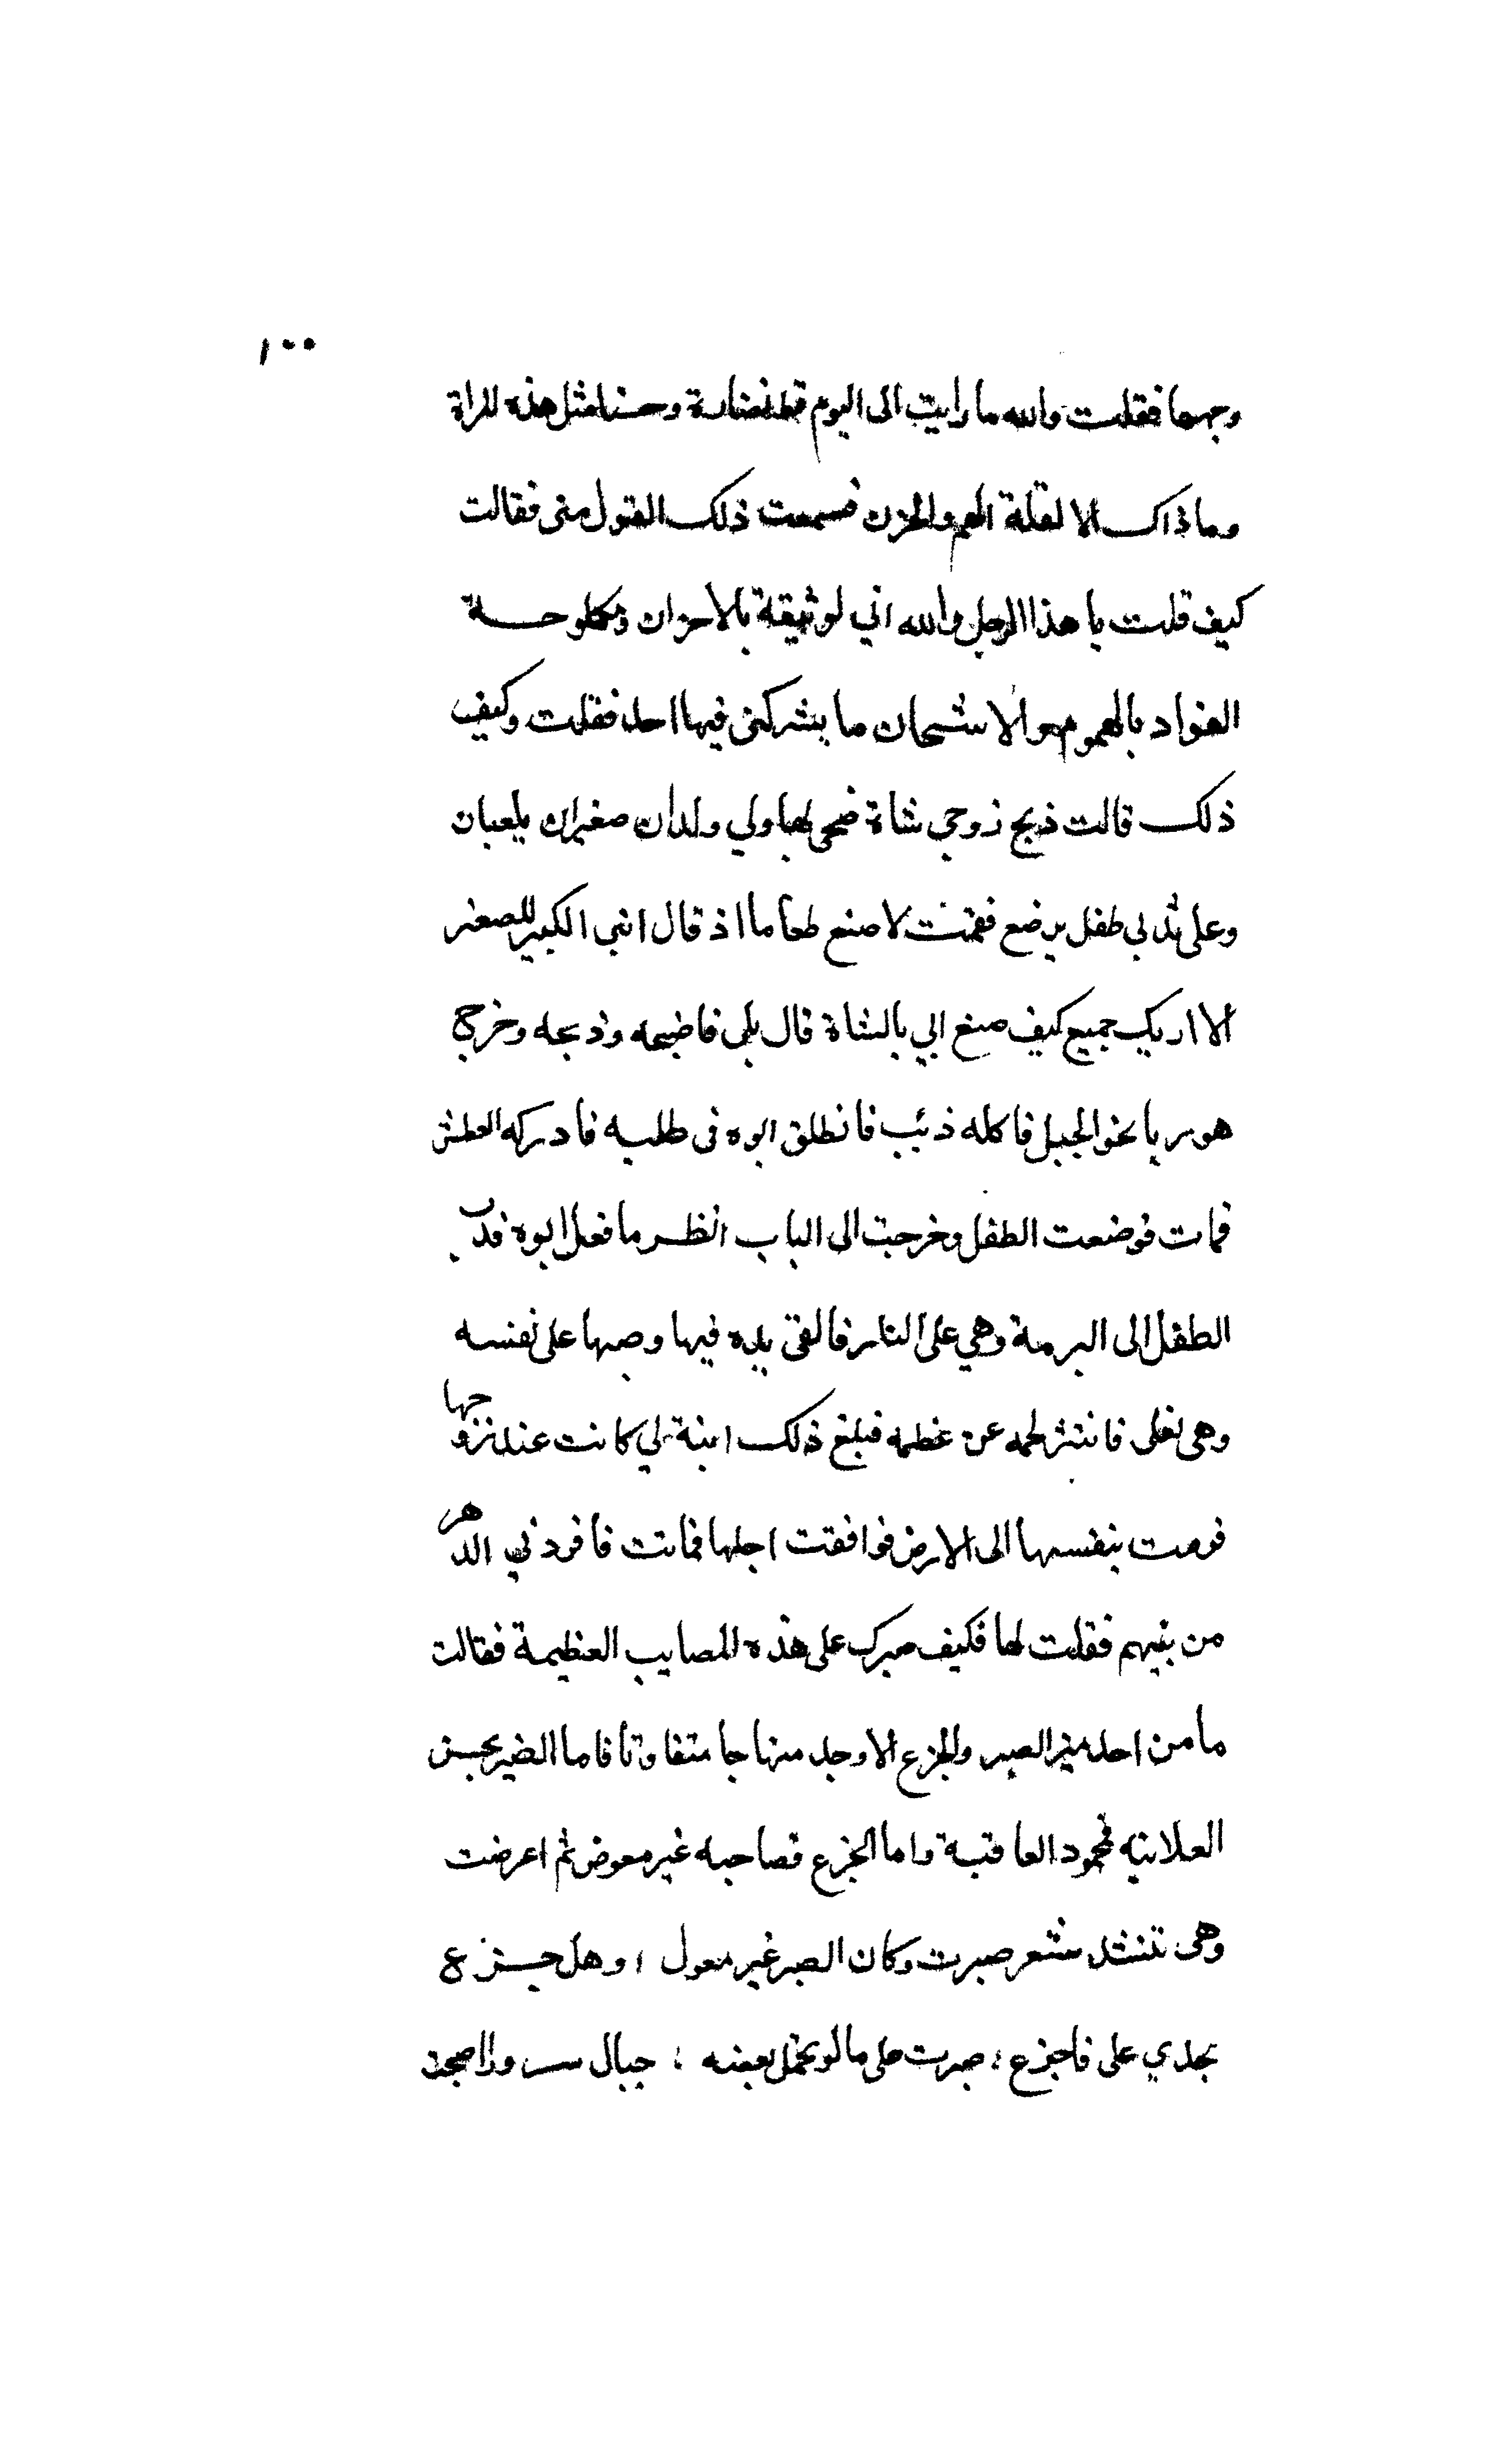 ١٠٠
وجهها فقلت والله ما رايت الى اليوم قط نضارة وحسنا مثل هذه المراة
وما ذاك الا لقلة الهم والحزن فسمعت ذلك القول منى فقالت
كيف قلت يا هذا الرجل والله اني لوثيقة بالاحزان
الفواد بالهموم والاشجان ما يشركنى فيها احد فقلت وكيف
ذلك قالت ذبح زوجي شاة ضحى بها ولي ولدان صغيران يلعبان
وعلى ثدي لي طفل يرضع فقمت لاصنع طعاما اذ قال ابني الكبير للصغير
الا اريك جميع كيف صنع ابي بالشاة قال بلى فاضجعه وذبحه وخرج
هوربا نحو الجبل فاكله ذئب فانطلق ابوه فى طلبه فادركه العطش
فمات فوضعت الطفل وخرجت الى الباب انظر ما فعل ابوه فدب
الطفل الى البرمة وهي على النار فالقى يده فيها وصبها على نفسه
وهى تغلى فانتثر لحمه عن عظمه فبلغ ذلك ابنة لي كانت عند زوجها
فرمت بنفسها الى الارض فوافقت اجلها فماتت فافردني الدهر
من بينهم فقلت لها فكيف صبرك على هذه المصايب العظيمة فقالت
ما من احد ميز الصبر والجزع الا وجد منهاجا متفاوتا فاما الصبر بحسن
العلانيه فمحمود العاقبة واما الجزع فصاحبه غير معوض ثم اعرضت
وهى تنشد شعر صبرت وكان الصبر غير معول ؛ وهل جزع
يجدي على فاجزع ؛ صبرت على ما لو تحمل بعضه ؛ جبال